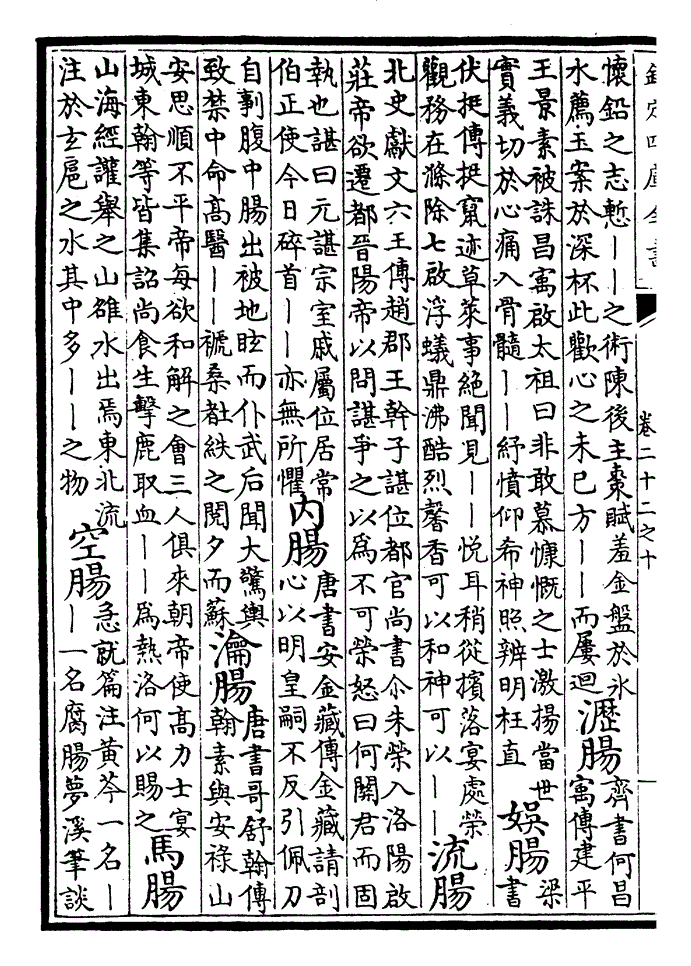 欽定四庫全書
卷二十二之十
懷鉛之志慙丨丨之術陳後主棗賦羞金盤於氷
水薦玉案於深杯此歡心之未已方丨丨而屢迴
瀝腸
齊書何昌
寓傳建平
王景素被誅昌寓啟太祖曰非敢慕慷慨之士激揚當世
實義切於心痛入骨髓丨丨紓憤仰希神照辨明枉直
娛腸
梁
書
伏挺傳挺竄迹草萊事絶聞見丨丨悅耳稍從擯落宴處榮
觀務在滌除七啟浮蟻鼎沸酷烈馨香可以和神可以丨丨
流腸
北史獻文六王傳趙郡王幹子諶位都官尚書尒朱榮入洛陽啟
莊帝欲遷都晉陽帝以問諶爭之以為不可榮怒曰何關君而固
執也諶曰元諶宗室戚屬位居常
伯正使今日碎首丨丨亦無所懼
内腸
唐書安金藏傳金藏請剖
心以明皇嗣不反引佩刀
自剚腹中腸出被地眩而仆武后聞大驚輿
致禁中命高醫丨丨褫桑杜紩之閱夕而蘇
瀹腸
唐書哥舒翰傳
翰素與安祿山
安思順不平帝每欲和解之會三人俱來朝帝使高力士宴
城東翰等皆集詔尚食生擊鹿取血丨丨為熱洛何以賜之
馬腸
山海經讙舉之山雒水出焉東北流
注於玄扈之水其中多丨丨之物
空腸
急就篇注黄芩一名丨
丨一名腐腸夢溪筆談